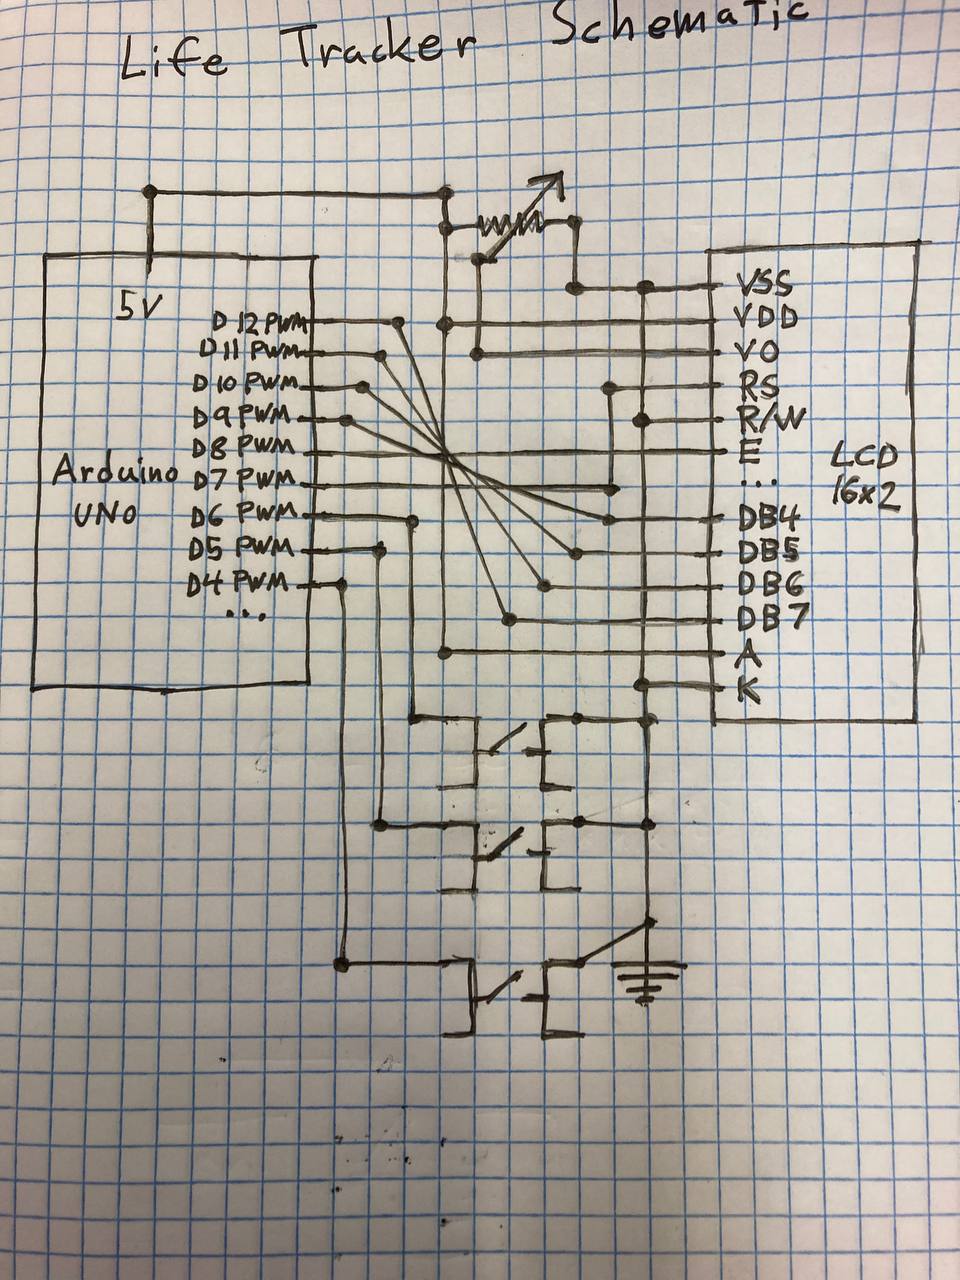 Life Tracker Schematic
5V
D12 PWM
D11 PWM
D10 PWM
D9 PWM
D8 PWM
D7 PWM
D6 PWM
D5 PWM
D4 PWM
...
Arduino
UNO
VSS
VDD
VO
RS
R/W
E
...
DB4
DB5
DB6
DB7
A
K
LCD
16x2